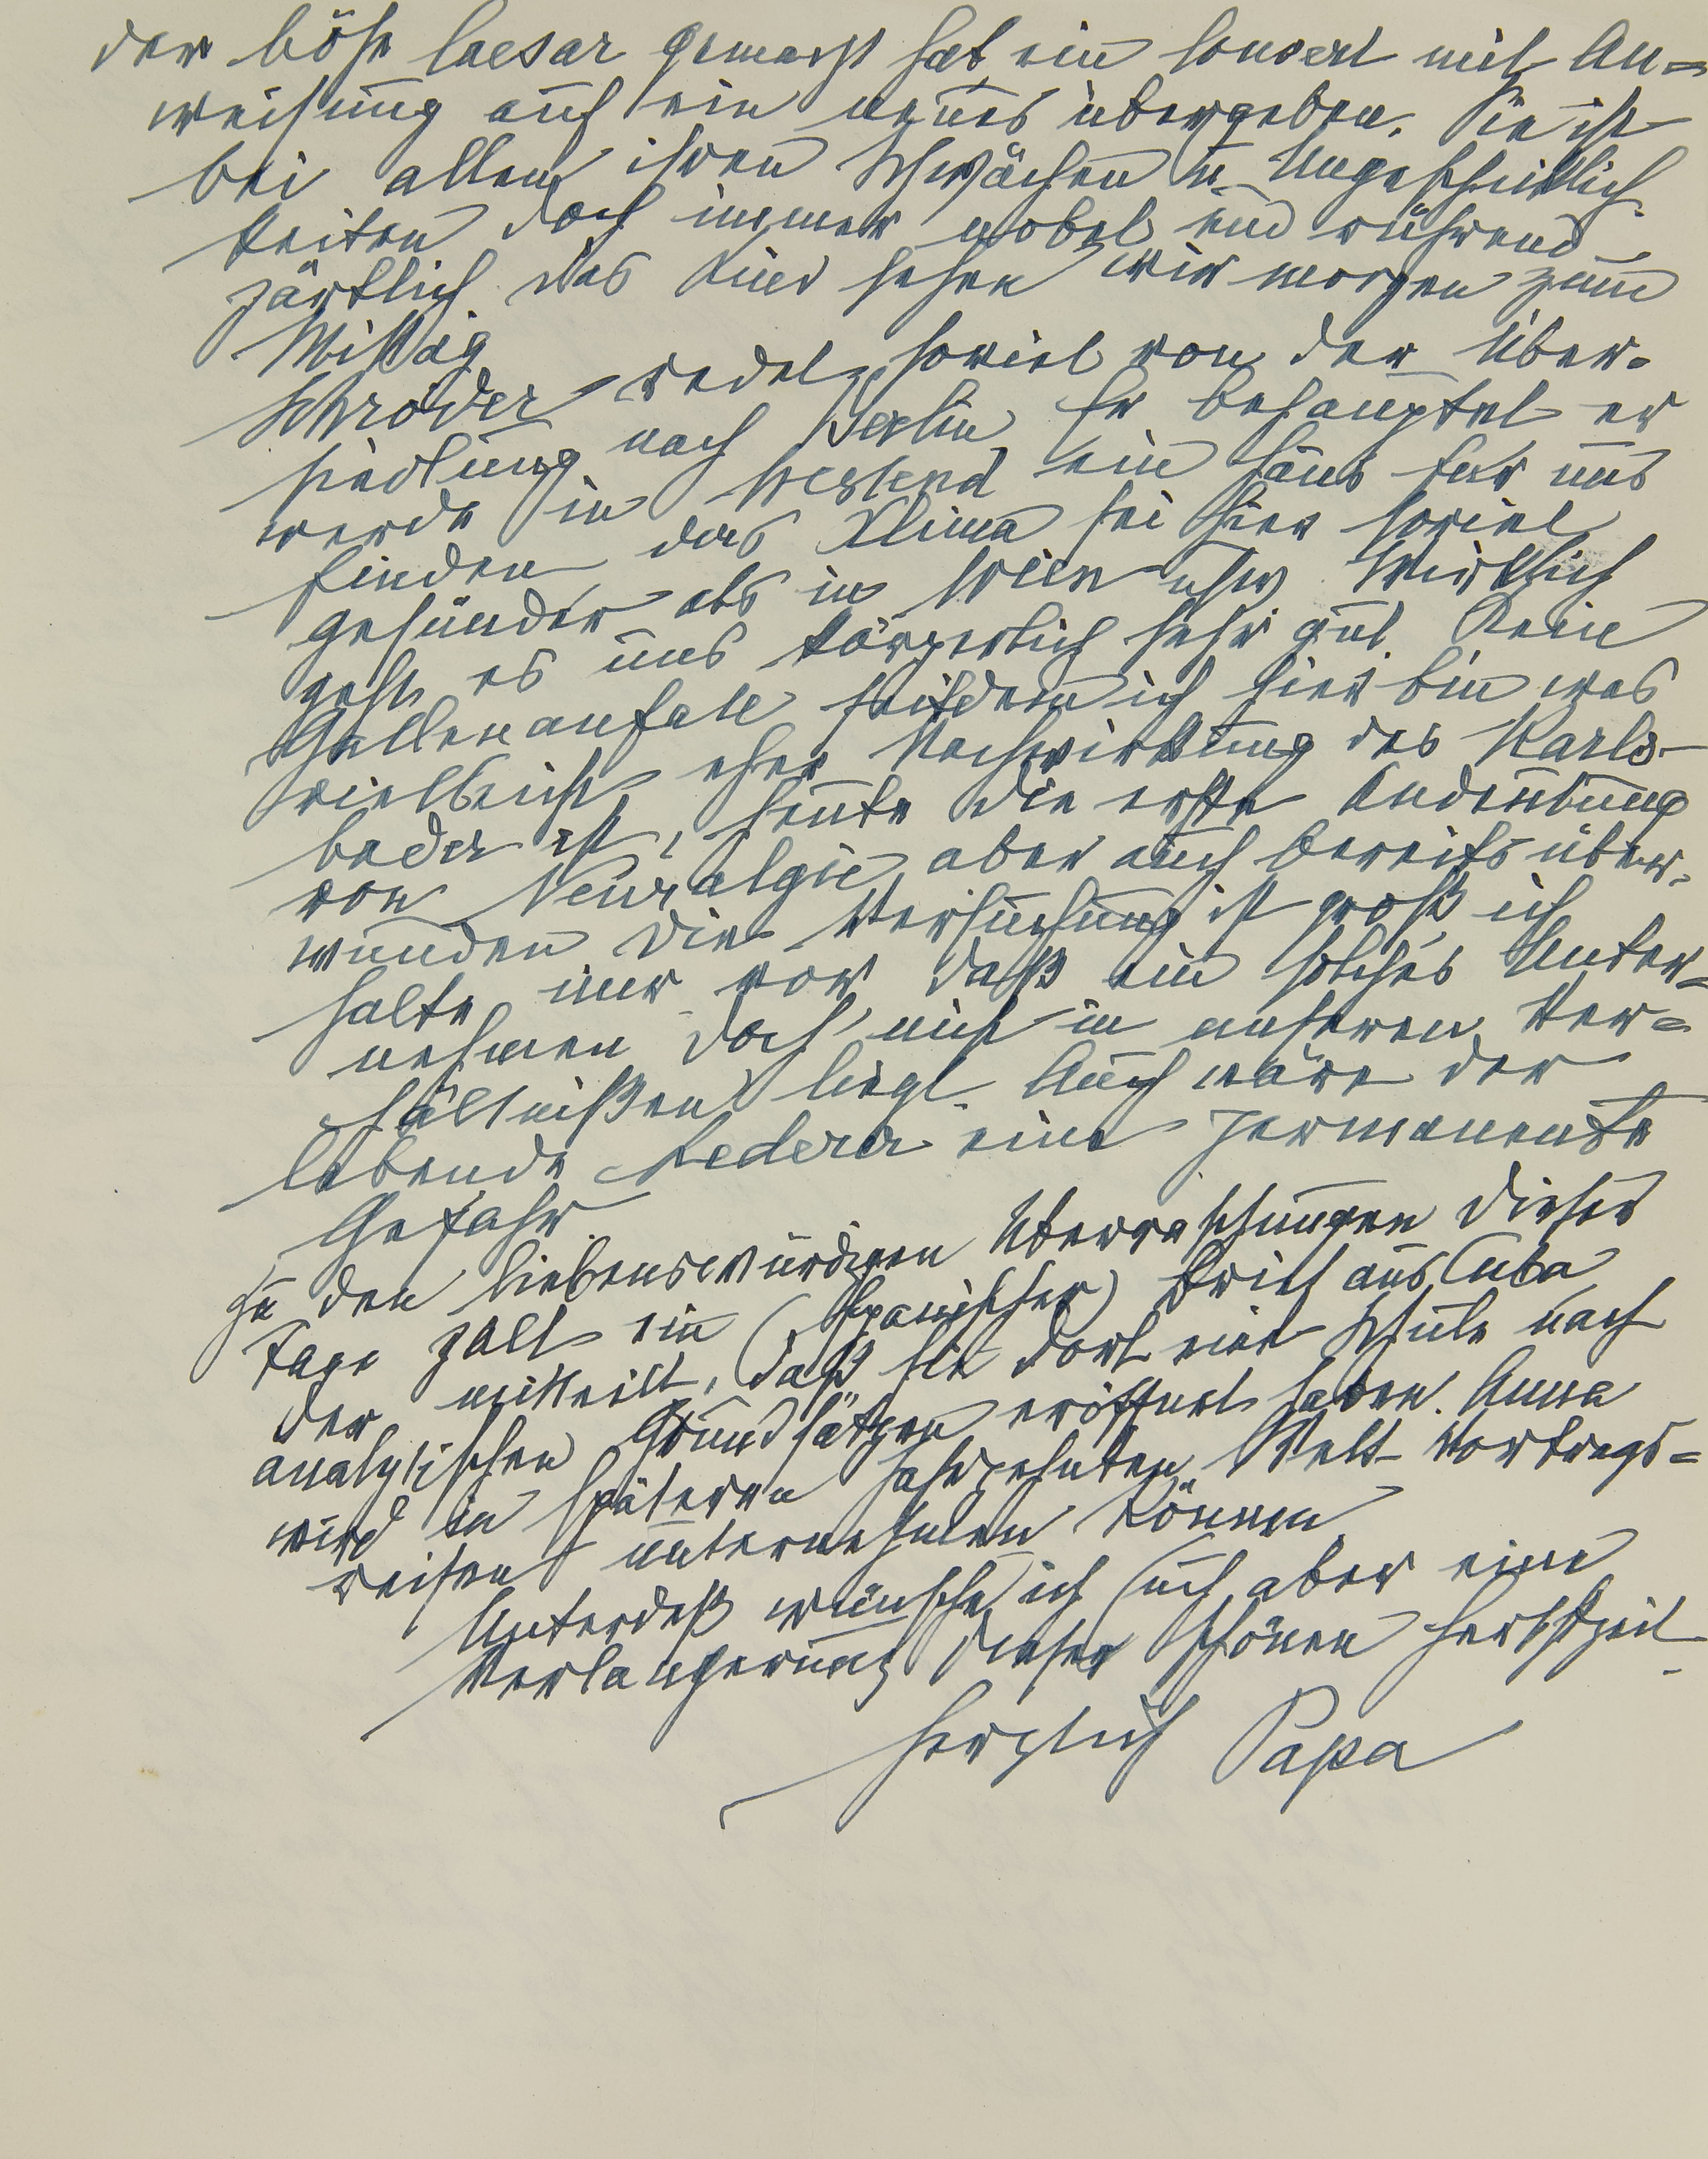 der böse Caesar gemacht hat ein Couvert mit An=
weisung auf ein neues übergeben. Sie ist
bei allen ihren Schwächen u Ungeschicklich-
keiten doch immer nobel und rührend
zärtlich. Das Kind sehen wir morgen zum
Mittag
Schröder redet soviel von der Über-
siedlung nach Berlin. Er behauptet er
werde in Westend ein Haus für uns
finden, das Klima sei hier soviel
gesünder als in Wien usw. Wirklich
geht es uns körperlich sehr gut. Kein
Gallenanfall seitdem ich hier bin was
vielleicht eher Nachwirkung des Karls-
bader ist, heute die erste Andeutung
von Neuralgie, aber auch bereits über-
wunden. Die Versuchung ist groß, ich
halte mir vor daß ein solches Unter=
nehmen doch nicht in unseren Ver=
hältnißen liegt. Auch wäre der
lebende Lederer eine permanente
Gefahr.
Zu den liebenswürdigen Überraschungen dieser
Tage zält ein (spanischer) Brief aus Cuba
der mitteilt, daß sie dort eine Schule nach
analytischen Grundsätzen eröffnet haben. Anna
wird in späteren Jahrzehnten Welt-Vortrags=
reisen unternehmen können
Unterdeß wünsche ich Euch aber eine
Verlängerung dieser schönen Herbstzeit
herzlich Papa